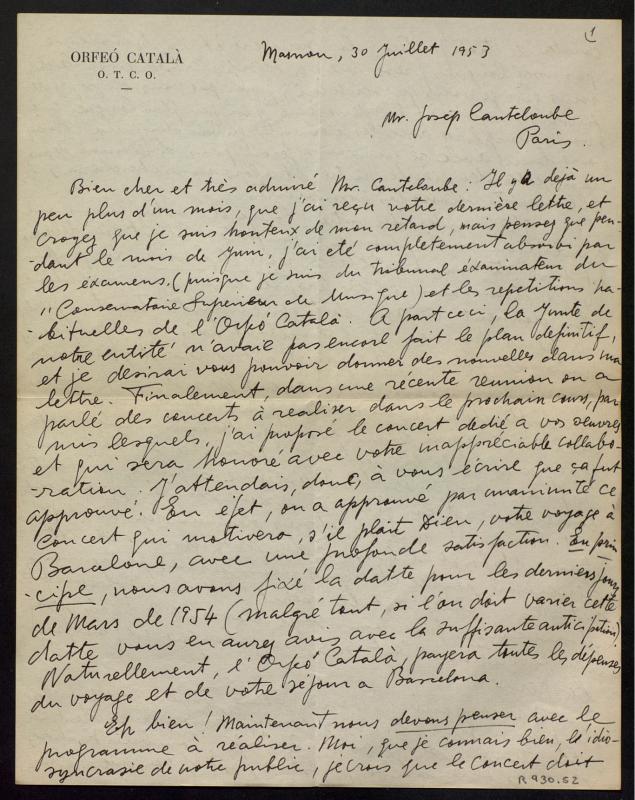 1
ORFEÓ CATALÀ
O. T. C. O.
Masnou, 30 Juillet 1953
Mr. Josép Canteloube
Paris.
Bien cher et très admiré Mr. Canteloube: Il y a déjà un
peu plus d'un mois, que j'ai reçu votre dernière lettre, et
croyez que je suis honteux de mon retard, mais pensez que pen-
-dant le mois de Juin, j'ai eté completement absorbé par
les éxamens, (puisque je suis du tribunal éxaminateur du
"Conservatoire Superieur de Musique) et les repetitions ha-
-bituelles de l'Orfeó Català. A part ceci, la Junte de
notre entité n'avait pas encore fait le plan definitif,
et je desirai vous pouvoir donner des nouvelles dans ma
lettre. Finalement, dans une récente reunion on a
parlé des concerts à realiser dans le prochain cours, par
mis lesquels, j'ai proposé le concert dedié a vos oeuvres
et qui sera honoré avec votre inappréciable collabo-
-ration. J'attendais, donc, à vous écrire que ça fut
approuvé. En éfet, on a approuvé par unanimité ce
concert qui motivera, s'il plait Dieu, votre voyage à
Barcelone, avec une profonde satisfaction. En prin
-cipe, nous avons fixé la datte pour les derniers jours
de Mars de 1954 (malgré tout, si l'on doit varier cette
datte vous en aurez avis avec la suffisante anticipation)
Naturellement, l'Orfeó Català, payera toutes les dépenses
du voyage et de votre séjour a Barcelona.
Eh bien! Maintenant nous devons penser avec le
programme à réaliser. Moi, que je connais bien, la idio-
syncrasie de notre public, je crois que le concert doit
R.930.52